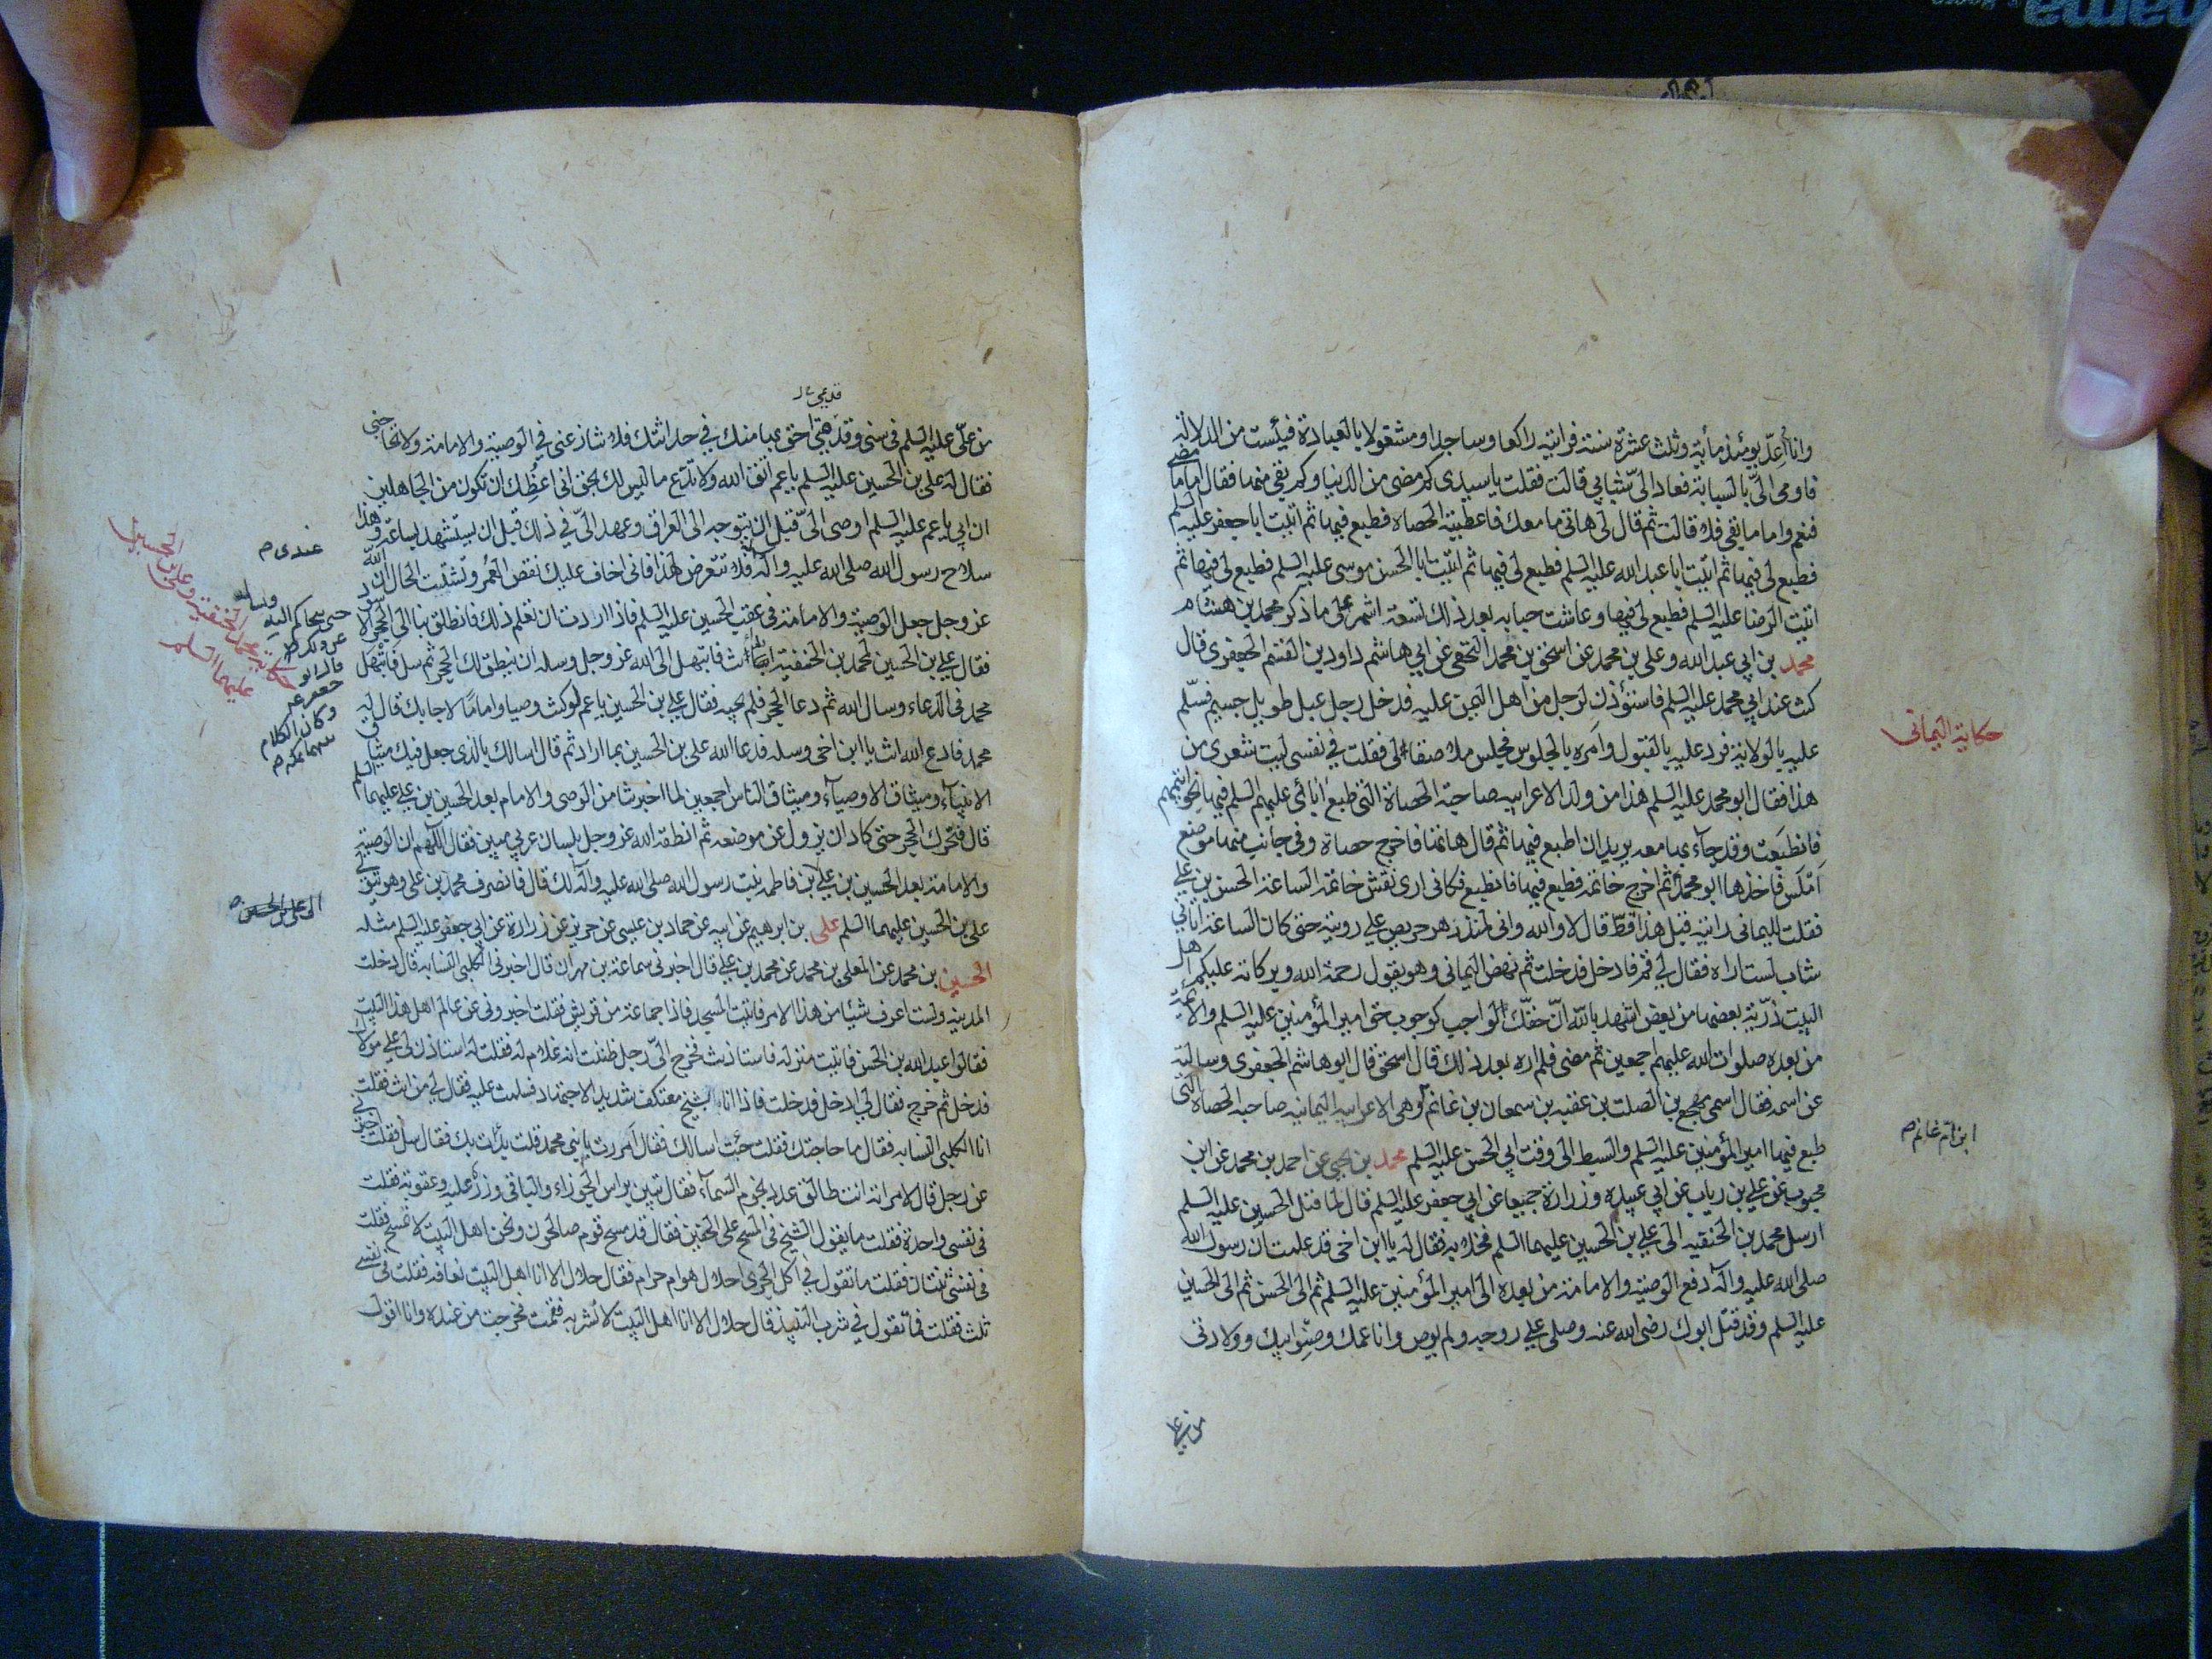 وانا اعدّ يومئذ مأية وثلث عشرة سنة فرايته راكعا وساجدا ومشغولا بالعبادة فيئست من الدلالة
فاومى الىّ بالسبابة فعاد الىّ شبابي قالت فقلت يا سيدى كم مضى من الدنيا وكم بقى منها فقال اما ما مضى
فنعم واما ما بقى فلا قالت ثم قال لى هاتى ما معك فاعطيته الحصاة فطبع فيها ثم اتيت ابا جعفر عليه السلم
فطبع لى فيها ثم اتيت ابا عبد الله عليه السلم فطبع لى فيها ثم اتيت ابا الحسن موسى عليه السلم فطبع لى فيها ثم
اتيت الرضا عليه السلم فطبع لى فيها وعاشت حبابه بعد ذلك تسعة اشهر على ما ذكر محمد بن هشام
محمد بن ابي عبد الله وعلى بن محمد عن اسحق بن محمد النخعى عن ابي هاشم داود بن القسم الجعفرى قال
كنت عند ابي محمد عليه السلم فاستؤذن لرجل من اهل اليمن عليه فدخل رجل عبل طويل جسيم فسلّم
عليه بالولاية فرد عليه بالقبول وامره بالجلوس فجلس ملاصقا لى فقلت في نفسى ليت شعرى من
حكاية اليمانى
هذا فقال ابو محمد عليه السلم هذا من ولد الاعرابيه صاحبة الحصاة التى طبع آبائى عليهم السلم فيها بخواتيمهم
فانطبعت وقد جاء بها معه يريد ان اطبع فيها ثم قال هاتها فاخرج حصاة وفى جانب منها موضع
املس فاخذها ابو محمد ثم اخرج خاتمه فطبع فيها فانطبع فكانى ارى نقش خاتمه الساعة الحسن بن علي
فقلت لليمانى رايته قبل هذا قطّ قال لا والله وانى لمنذ دهر حريص على رويته حتى كان الساعة اتانى
شاب لست اراه فقال لى قم فادخل فدخلت ثم نهض اليمانى وهو يقول رحمة الله وبركاته عليكم اهل
البيت ذرّية بعضها من بعض اشهد بالله انّ حقّك لواجب كوجوب حق امير المؤمنين عليه السلم والائمّة
من بعده صلوات الله عليهم اجمعين ثم مضى فلم اره بعد ذلك قال اسحق قال ابو هاشم الجعفرى وسالته
عن اسمه فقال اسمى مهجع بن الصلت بن عقبه بن سمعان بن غانم وهى الاعرابيه اليمانيه صاحبه الحصاة التى
ابن ام غانم ص
طبع فيها امير المؤمنين عليه السلم والسبط الى وقت ابي الحسن عليه السلم محمد بن يحيى عن احمد بن محمد عن ابن
محبوب عن علي بن رياب عن ابي عبيده وزرارة جميعا عن ابي جعفر عليه السلم قال لما قتل الحسين عليه السلم
ارسل محمد بن الحنفيه الى علي بن الحسين عليهما السلم فخلا به فقال له يا ابن اخى قد علمت ان رسول الله
صلى الله عليه وآله دفع الوصية والامامة من بعده الى امير المؤمنين عليه السلم ثم الى الحسن ثم الى الحسين
عليه السلم وقد قتل ابوك رضى الله عنه وصلى على روحه ولم يوص وانا عمك وصنو ابيك وولادتى
من علي
قديمى
من علىّ عليه السلم فى سنى وقدمتى احق بها منك في حداثتك فلا تنازعنى في الوصية والامامة ولا تحاجنى
فقال له على بن الحسين عليه السلم يا عم اتق الله ولا تدّع ما ليس لك بحق انى اعظك ان تكون من الجاهلين
ان ابي يا عم عليه السلم اوصى الىّ قبل ان يتوجه الى العراق وعهد الىّ في ذلك قبل ان يستشهد بساعة وهذا
سلاح رسول الله صلى الله عليه وآله فلا تتعرض لهذا فانى اخاف عليك نقص العمر وتشتّت الحال ان الله
عندى ص
عز وجل جعل الوصية والامامة فى عقب الحسين عليه السلم فاذا اردت ان تعلم ذلك فانطلق بنا الى الحجر الاسود
حتى نتحاكم اليه
ونساله
عن ذلك
قال ابو
جعفر ع
وكان الكلام
بينهما بمكه ص
حكاية محمد الحنفية وعلى بن الحسين
عليهما السلم
فقال علي بن الحسين لمحمد بن الحنفية ابدأ انت فابتهل الى الله عز وجل وسله ان ينطق لك الحجر ثم سل فابتهل
محمد فى الدعاء وسال الله ثم دعا الحجر فلم يجبه فقال علي بن الحسين يا عم لو كنت وصيا واماما لاجابك قال له
محمد فادع الله انت يا ابن اخى وسله فدعا الله على بن الحسين بما اراد ثم قال اسالك بالذى جعل فيك ميثاق
الانبياء وميثاق الاوصياء وميثاق الناس اجمعين لما اخبرتنا من الوصى والامام بعد الحسين بن علي عليهما السلم
قال فتحرك الحجر حتى كاد ان يزول عن موضعه ثم انطقه الله عز وجل بلسان عربي مبين فقال اللهم ان الوصية
والامامة بعد الحسين بن علي بن فاطمه بنت رسول الله صلى الله عليه وآله لك قال فانصرف محمد بن على وهو يتولى
الى على بن الحسين ص
على بن الحسين عليهما السلم على بن ابرهيم عن ابيه عن حماد بن عيسى عن حريز عن زرارة عن ابي جعفر عليه السلم مثله
الحسين بن محمد عن المعلى بن محمد عن محمد بن علي قال اخبرنى سماعة بن مهران قال اخبرنى الكلبى النسابه قال دخلت
المدينه ولست اعرف شيئا من هذا الامر فاتيت المسجد فاذا جماعة من قريش فقلت اخبرونى عن عالم اهل هذا البيت
فقالوا عبد الله بن الحسن فاتيت منزله فاستاذنت فخرج الىّ رجل ظننت انه غلام له فقلت له استاذن لى على مولاك
فدخل ثم خرج فقال لى ادخل فدخلت فاذا انا بشيخ معتكف شديد الاجتهاد فسلمت عليه فقال لى من انت فقلت
انا الكلبى النسابه فقال ما حاجتك فقلت جئت اسالك فقال امررت بابني محمد قلت بدأت بك فقال سل فقلت اخبرنى
عن رجل قال لامراته انت طالق عدد نجوم السماء فقال تبين براس الجوزاء والباقى وزر عليه وعقوبة فقلت
فى نفسى واحدة فقلت ما يقول الشيخ فى المسح على الخفين فقال قد مسح قوم صالحون ونحن اهل البيت لا نمسح فقلت
فى نفسى ثنتان فقلت ما تقول في اكل الجرى احلال هو ام حرام فقال حلال الا انا اهل البيت نعافه فقلت فى نفسى
ثلث فقلت فما تقول في شرب النبيذ قال حلال الا انا اهل البيت لا نشربه فقمت فخرجت من عنده وانا اقول